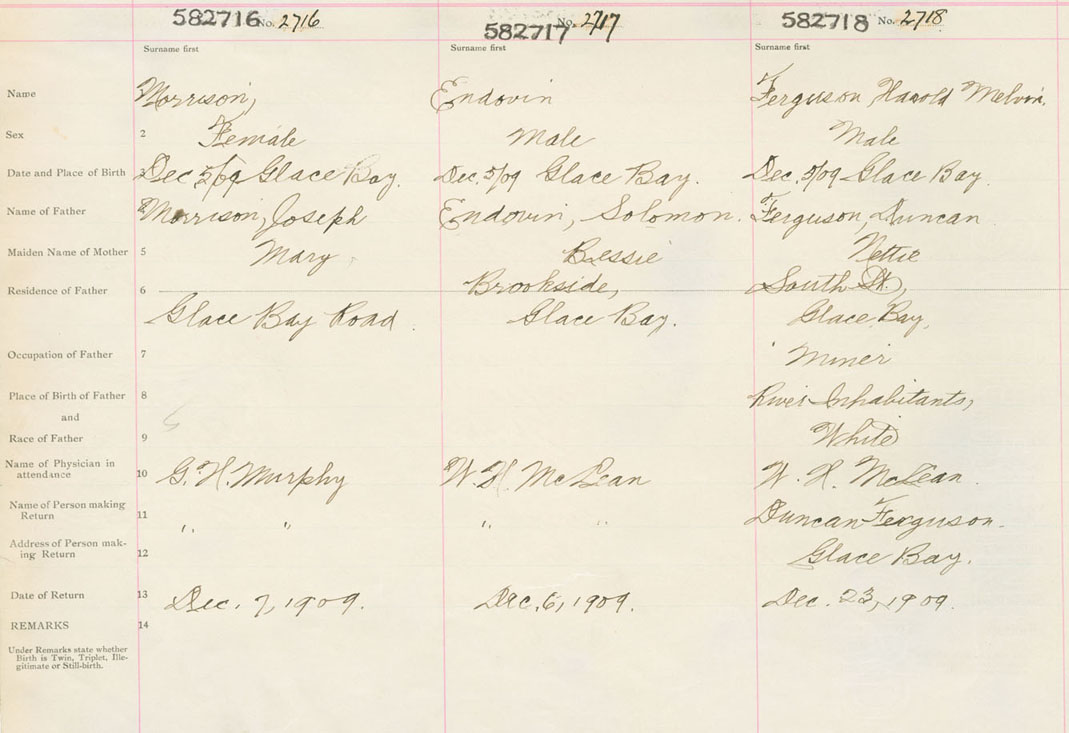 582716 No. 2716 582717 No. 2717 582718 No. 2718
Surname first Surname first Surname first
Name Morrison, Endovin Ferguson Harold Melvin.
Sex 2 Female Male Male
Date and Place of Birth 3 Dec 5/09 Glace Bay. Dec. 5/09 Glace Bay. Dec. 5/09 Glace Bay.
Name of Father Morrison, Joseph Endovin, Solomon. Ferguson, Duncan
Maiden Name of Mother 5 Mary Bessie Nettie
Residence of Father 6 Brookside, South St.,
Glace Bay Road. Glace Bay. Glace Bay,
Occupation of Father 7 Miner
Place of Birth of Father 8 River Inhabitants,
and
Race of Father 9 White
Name of Physician in
attendance 10 G. H. Murphy W. H. McLean W. H. McLean.
Name of Person making
Return 11 " " " " Duncan Ferguson.
Address of Person mak-
ing Return 12 Glace Bay.
Date of Return 13 Dec. 7, 1909. Dec. 6, 1909. Dec. 23, 1909.
REMARKS 14
Under Remarks state whether
Birth is Twin, Triplet, Ille-
gitimate or Still-birth.